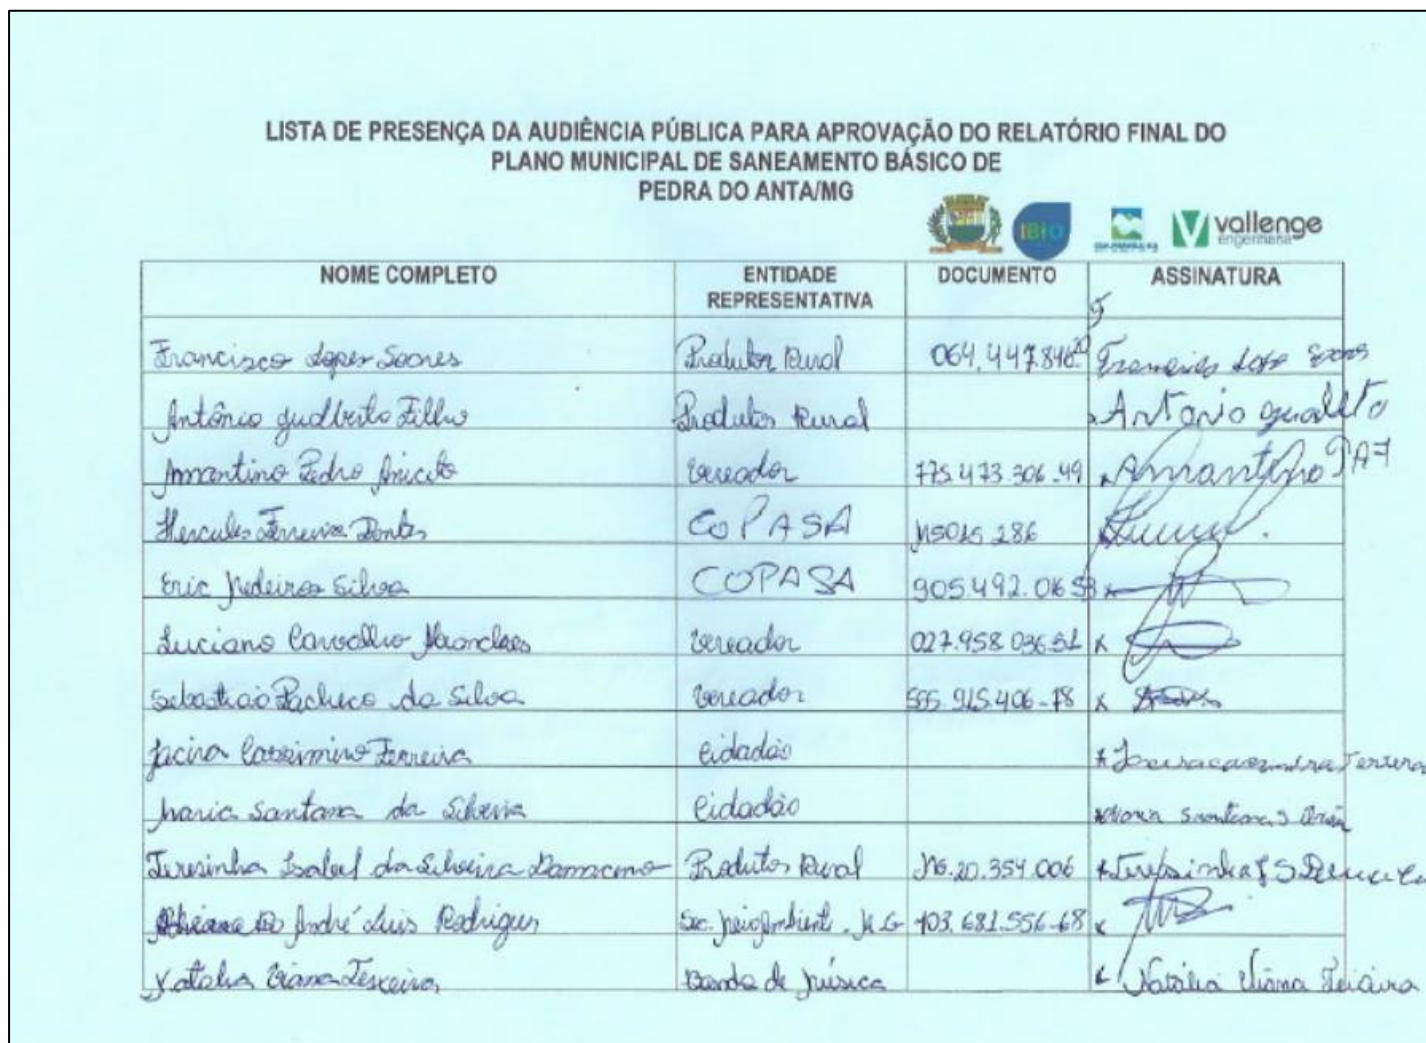 LISTA DE PRESENÇA DA AUDIÊNCIA PÚBLICA PARA APROVAÇÃO DO RELATÓRIO FINAL DO
PLANO MUNICIPAL DE SANEAMENTO BÁSICO DE
PEDRA DO ANTA/MG
IBIO vallenge
engenharia
NOME COMPLETO ENTIDADE REPRESENTATIVA DOCUMENTO ASSINATURA
Francisco Lopes Soares Produtor Rural 064.447.846.20 Francisco Lopes Soares
Antônio Gualberto Filho Produtor Rural Antonio Gualberto
Amantino Pedro Aniceto Vereador 775.473.306-49 Amantino PAF
Hercules Ferreira Pontes COPASA M5015286
Eric Medeiros Silva COPASA 905.492.016.53
Luciano Carvalho Vereador 027.958.036.51
Sebastião Pacheco da Silva Vereador 555.915.406-78
Jacira Cassimiro Ferreira Cidadão Ferreira
Maria Santana da Silveira Cidadão Maria Santana
Teresinha Isabel da Silveira Damaceno Produtor Rural MG.20.354.006 Teresinha
André Luis Rodrigues Sec. Meio Ambiente. M.G 103.681.556-68
Natalia Viana Teixeira Banda de Música Natália Viana Teixeira